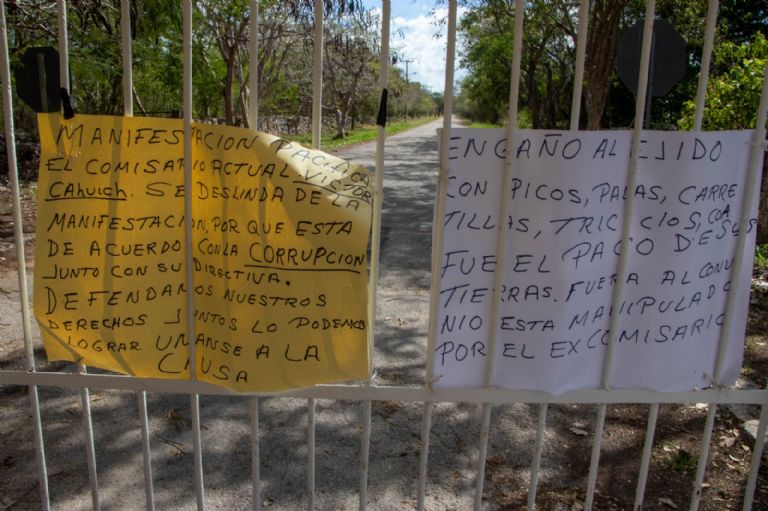 MANIFESTACION PACIFICA
EL COMISARIO ACTUAL VISTOR
CAHUICH SE DESLINDA DE LA
MANIFESTACION, POR QUE ESTA
DE ACUERDO CON LA CORRUPCION
JUNTO CON SU DIRECTIVA.
DEFENDAMOS NUESTROS
DERECHOS JUNTOS LO PODEMOS
LOGRAR UNANSE A LA
CAUSA
ENGAÑO AL EJIDO
CON PICOS, PALAS, CARRE
TILLAS, TRICICLOS, COA
FUE EL PAGO DE SUS
TIERRAS. FUERA AL CONVE
NIO ESTA MANIPULADO
POR EL EXCOMISARIO